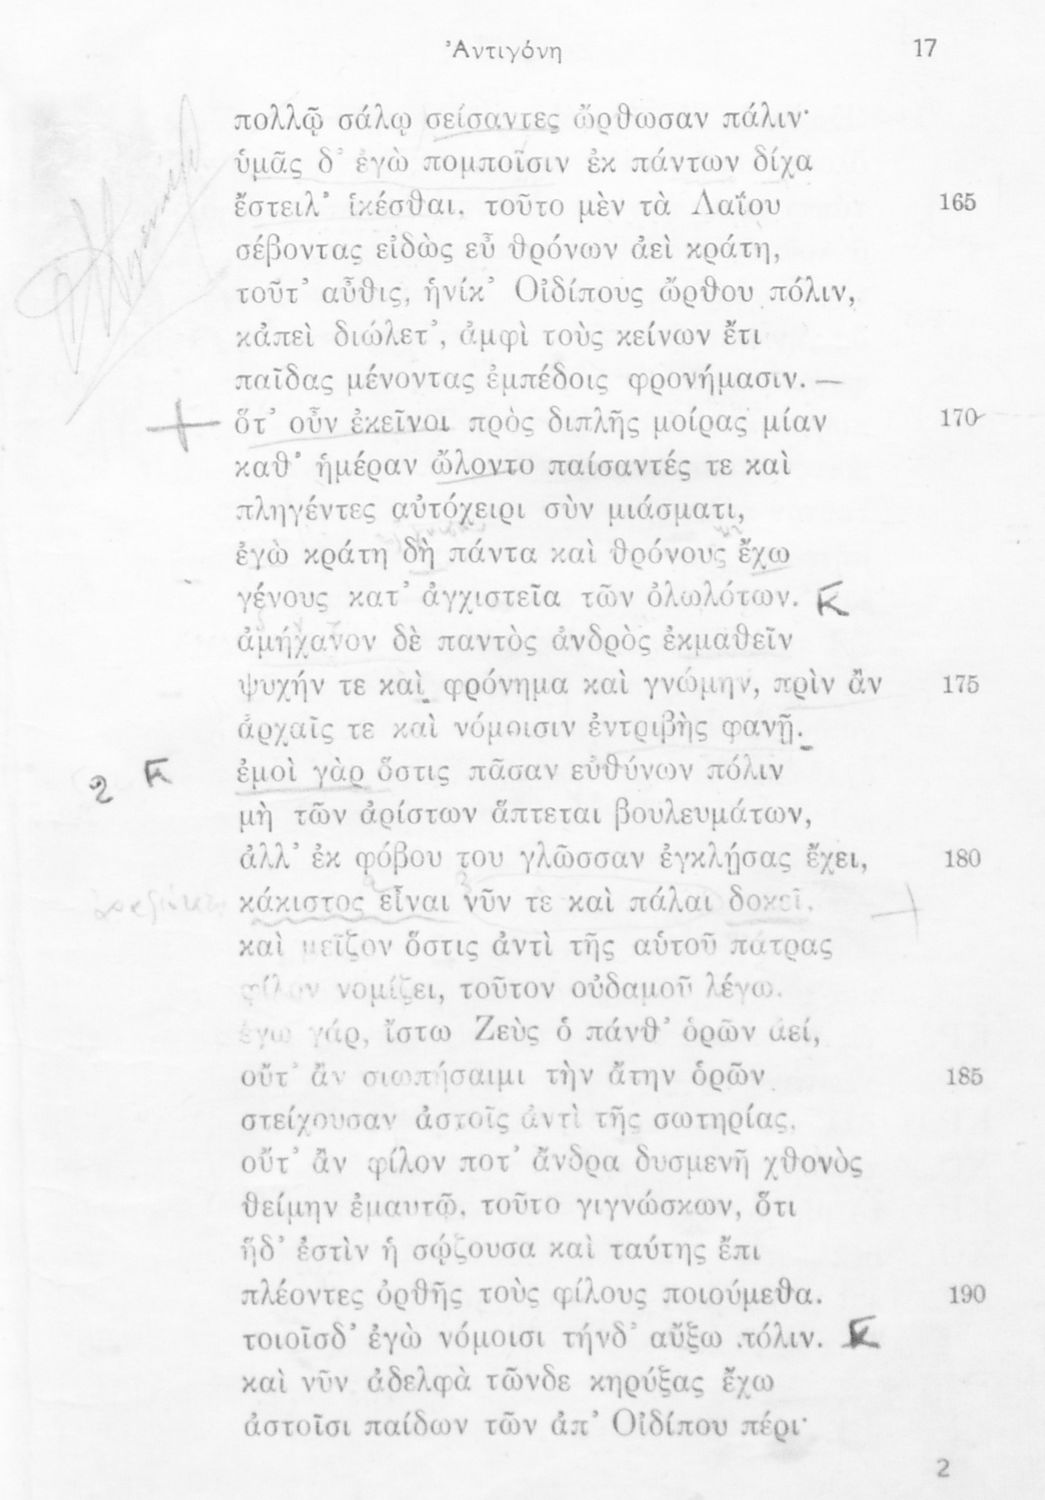 Ἀντιγόνη 17
πολλῷ σάλῳ σείσαντες ὤρθωσαν πάλιν·
ὑμᾶς δ’ ἐγὼ πομποῖσιν ἐκ πάντων δίχα
ἔστειλ’ ἱκέσθαι, τοῦτο μὲν τὰ Λαΐου 165
σέβοντας εἰδὼς εὖ θρόνων ἀεὶ κράτη,
τοῦτ’ αὖθις, ἡνίκ’ Οἰδίπους ὤρθου πόλιν,
κἀπεὶ διώλετ’, ἀμφὶ τοὺς κείνων ἔτι
παῖδας μένοντας ἐμπέδοις φρονήμασιν. —
ὅτ’ οὖν ἐκεῖνοι πρὸς διπλῆς μοίρας μίαν 170
καθ’ ἡμέραν ὤλοντο παίσαντές τε καὶ
πληγέντες αὐτόχειρι σὺν μιάσματι,
ἐγὼ κράτη δὴ πάντα καὶ θρόνους ἔχω
γένους κατ’ ἀγχιστεῖα τῶν ὀλωλότων.
ἀμήχανον δὲ παντὸς ἀνδρὸς ἐκμαθεῖν
ψυχήν τε καὶ φρόνημα καὶ γνώμην, πρὶν ἂν 175
ἀρχαῖς τε καὶ νόμοισιν ἐντριβὴς φανῇ.
2 ἐμοὶ γὰρ ὅστις πᾶσαν εὐθύνων πόλιν
μὴ τῶν ἀρίστων ἅπτεται βουλευμάτων,
ἀλλ’ ἐκ φόβου του γλῶσσαν ἐγκλῄσας ἔχει, 180
κάκιστος εἶναι νῦν τε καὶ πάλαι δοκεῖ.
καὶ μεῖζον ὅστις ἀντὶ τῆς αὑτοῦ πάτρας
φίλον νομίζει, τοῦτον οὐδαμοῦ λέγω.
ἐγὼ γάρ, ἴστω Ζεὺς ὁ πάνθ’ ὁρῶν ἀεί,
οὔτ’ ἂν σιωπήσαιμι τὴν ἄτην ὁρῶν 185
στείχουσαν ἀστοῖς ἀντὶ τῆς σωτηρίας,
οὔτ’ ἂν φίλον ποτ’ ἄνδρα δυσμενῆ χθονὸς
θείμην ἐμαυτῷ, τοῦτο γιγνώσκων, ὅτι
ἥδ’ ἐστὶν ἡ σῴζουσα καὶ ταύτης ἔπι
πλέοντες ὀρθῆς τοὺς φίλους ποιούμεθα. 190
τοιοῖσδ’ ἐγὼ νόμοισι τήνδ’ αὔξω πόλιν.
καὶ νῦν ἀδελφὰ τῶνδε κηρύξας ἔχω
ἀστοῖσι παίδων τῶν ἀπ’ Οἰδίπου πέρι·
2